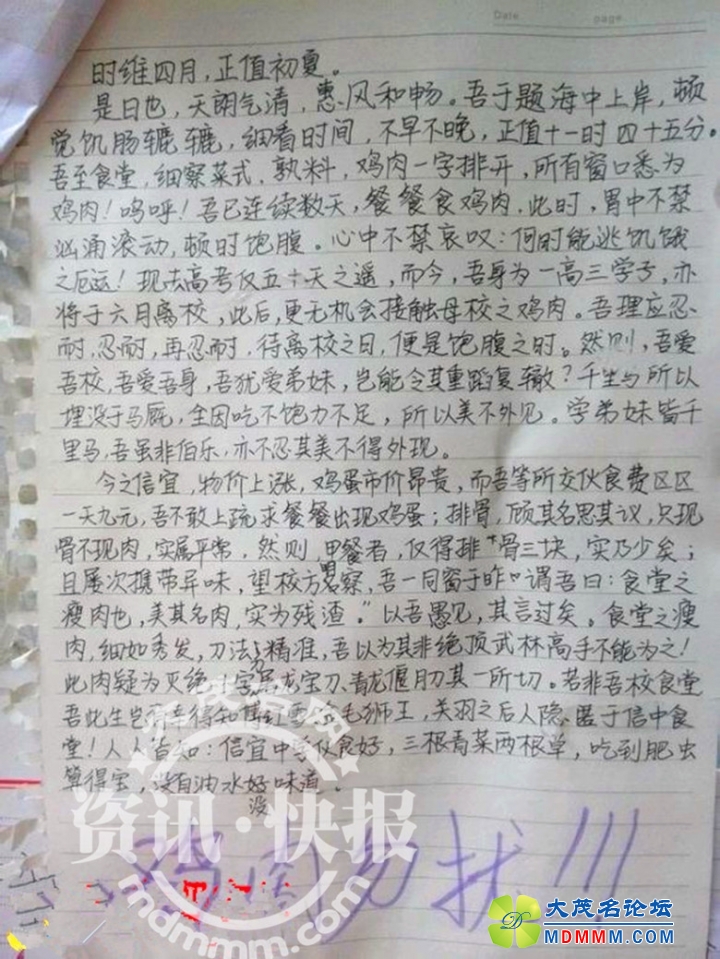 Date page
时维四月,正值初夏。
是日也,天朗气清,惠风和畅。吾于题海中上岸,顿
觉饥肠辘辘,细看时间,不早不晚,正值十一时四十五分。
吾至食堂,细察菜式,孰料,鸡肉一字排开,所有窗口悉为
鸡肉!呜呼!吾已连续数天,餐餐食鸡肉,此时,胃中不禁
汹涌滚动,顿时饱腹。心中不禁哀叹:何时能逃饥饿
之厄运!现法高考仅五十天之遥,而今,吾身为一高三学子,亦
将于六月离校,此后,更无机会接触母校之鸡肉。吾理应忍
耐,忍耐,再忍耐,待离校之日,便是饱腹之时。然则,吾爱
吾校,吾爱吾身,吾犹爱弟妹,岂能令其重蹈复辙?千里马所以
埋没于马厩,全因吃不饱力不足,所以美不外见。学弟妹皆千
里马,吾虽非伯乐,亦不忍其美不得外现。
今之信宜,物价上涨,鸡蛋市价昂贵,而吾等所交伙食费区区
一天九元,吾不敢上疏求餐餐出现鸡蛋;排骨,顾其名思其议,只现
骨不现肉,实属平常,然则,甲餐者,仅得排骨三块,实乃少矣;
且屡次携带异味,望校方明察,吾一同窗于昨谓吾曰:食堂之
瘦肉也,美其名肉,实为残渣。"以吾愚见,其言过矣。食堂之瘦
肉,细如秀发,刀法精准,吾以为其非绝顶武林高手不能为之!
此肉疑为灭绝 屠龙宝刀、青龙偃月刀其一所切。若非吾校食堂
吾此生岂 得知 金毛狮王,关羽之后人隐匿于信中食
堂!人人皆知:信宜中学伙食好,三根青菜两根草,吃到肥虫
算得宝,没有油水没好味道。
勿扰!!!
大茂名网
资讯·快报
mdmmm.com
大茂名论坛
MDMMM.COM